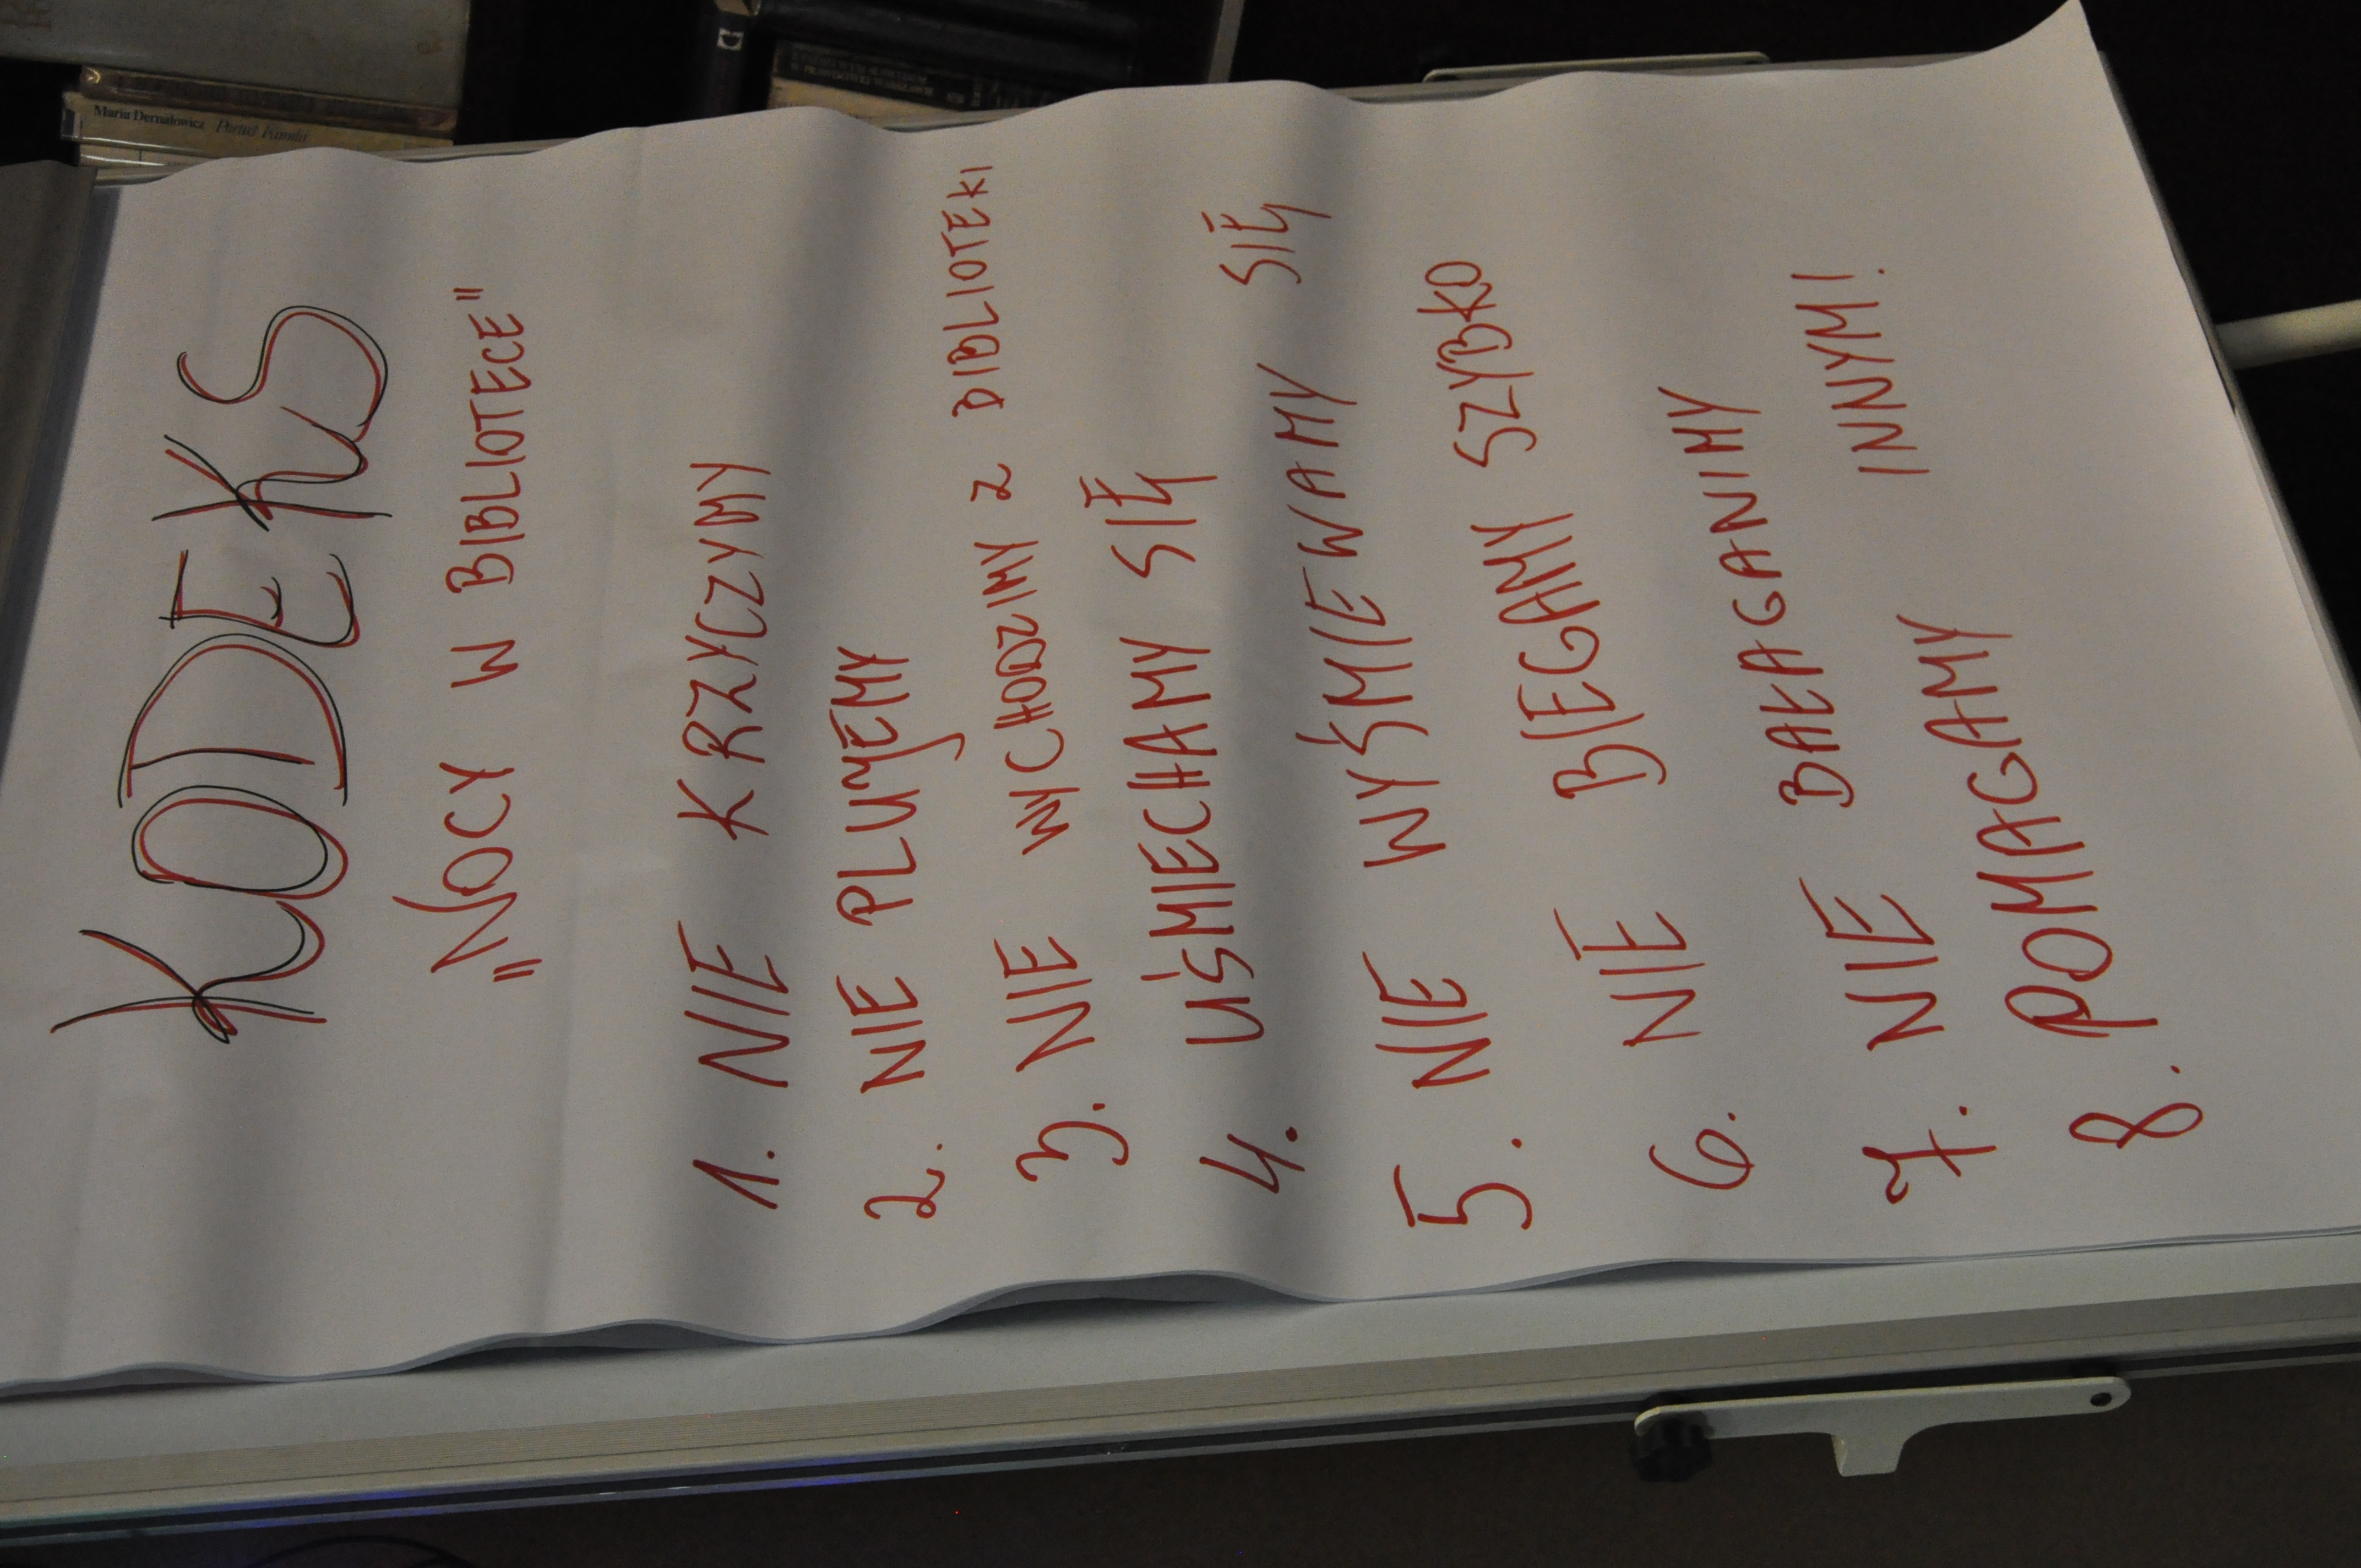 KODEKS
„NOCY W BIBLIOTECE"
1. NIE KRZYCZYMY
2. NIE PLUJEMY
3. NIE WYCHODZIMY Z BIBLIOTEKI
4. UŚMIECHAMY SIĘ
5. NIE WYŚMIEWAMY SIĘ
6. NIE BIEGAMY SZYBKO
7. NIE BAŁAGANIMY
8. POMAGAMY INNYM!
Maria Dernałowicz Portret Familii